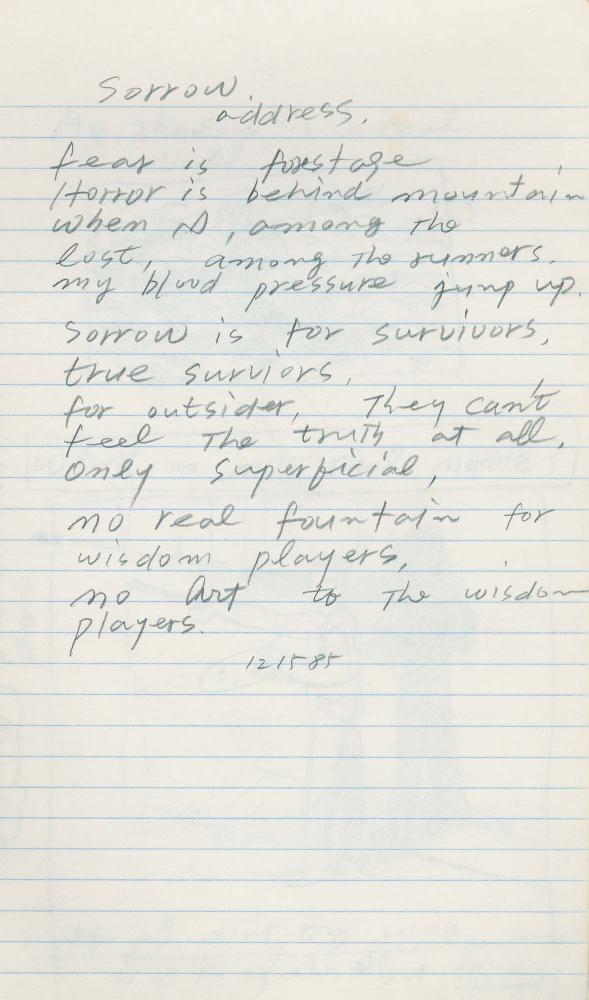 Sorrow.
address.
fear is forestage
Horror is behind mountain
when I, among the
lost, among the runners.
my blood pressure jump up.
Sorrow is for survivors,
true surviors,
for outsider, They can't
feel The truth at all,
only superficial,
no real fountain for
wisdom players,
no Art to The wisdom
players.
121585